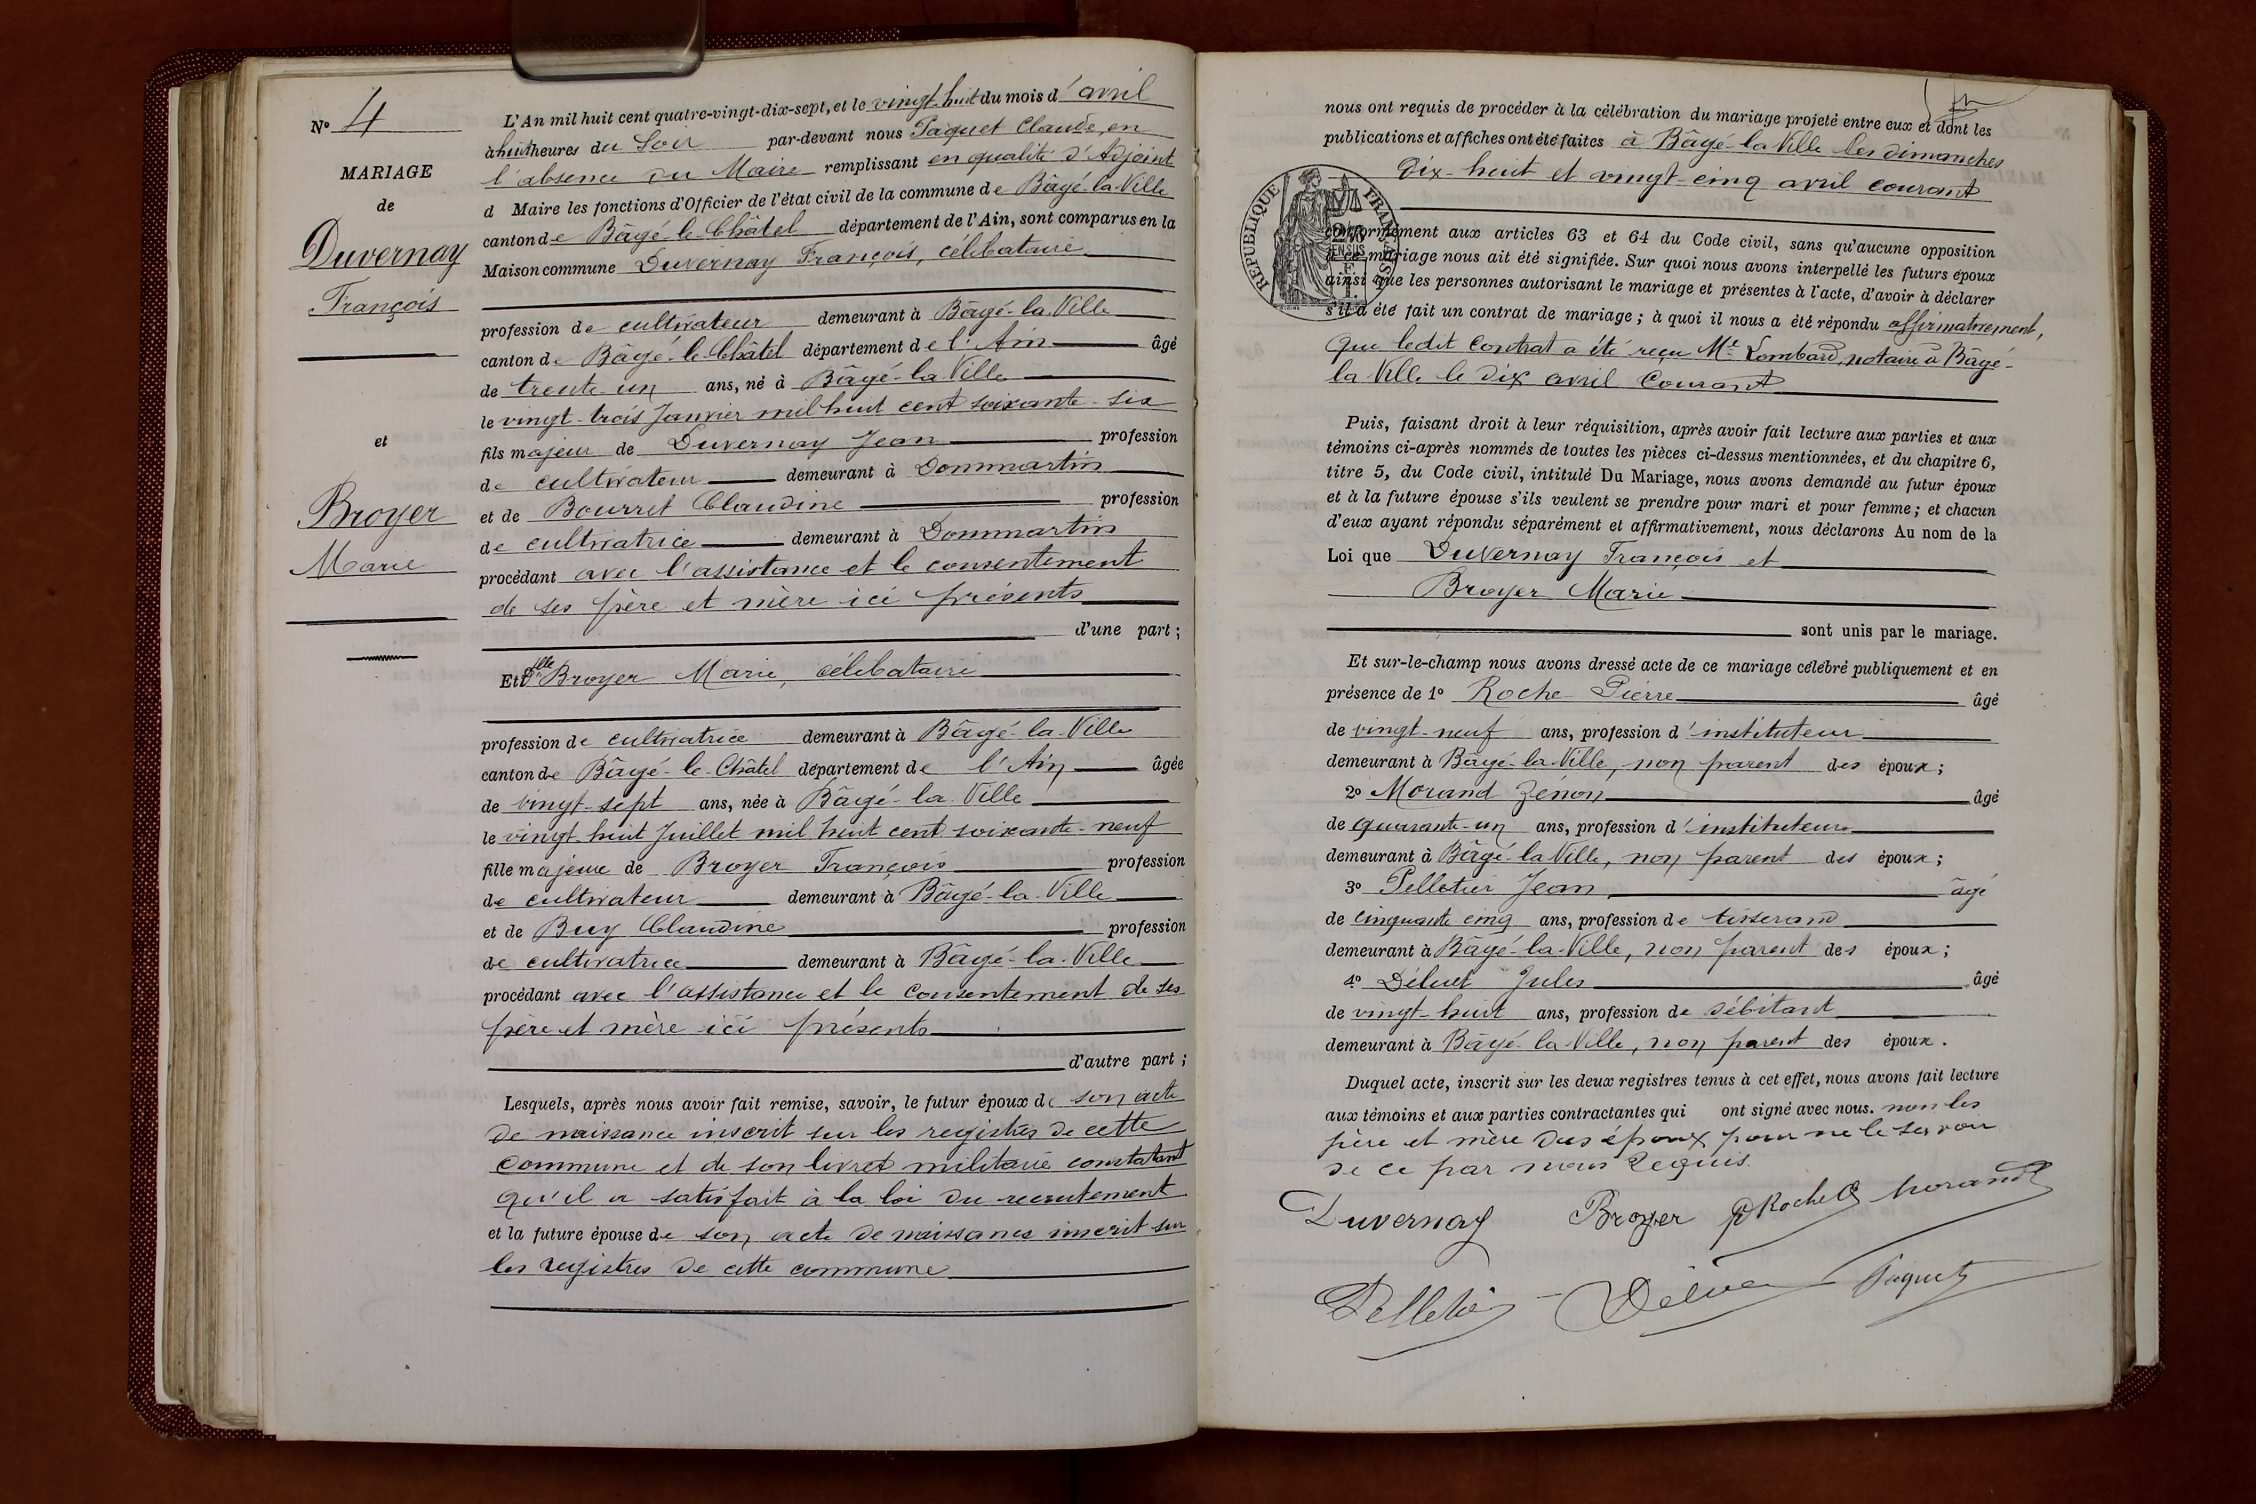 N° 4
MARIAGE
de
Duvernay
François
et
Broyer
Marie
L'An mil huit cent quatre-vingt-dix-sept, et le vingt-huit du mois d'avril
à huit heures du Soir par-devant nous Paquet Claude, en
l'absence du Maire remplissant en qualité d'Adjoint
d Maire les fonctions d'Officier de l'état civil de la commune de Bâgé-la-Ville
canton de Bâgé-le-Châtel département de l'Ain, sont comparus en la
Maison commune Duvernay François, célibataire
profession de cultivateur demeurant à Bâgé-la-Ville
canton de Bâgé-le-Châtel département de l'Ain âgé
de trente-un ans, né à Bâgé-la-Ville
le vingt-trois Janvier mil huit cent soixante-six
fils majeur de Duvernay Jean profession
de cultivateur demeurant à Dommartin
et de Bourret Claudine profession
de cultivatrice demeurant à Dommartin
procédant avec l'assistance et le consentement
de ses père et mère ici présents
d'une part;
Et Dlle Broyer Marie, célibataire
profession de cultivatrice demeurant à Bâgé-la-Ville
canton de Bâgé-le-Châtel département de l'Ain âgée
de vingt-sept ans, née à Bâgé-la-Ville
le vingt-huit Juillet mil huit cent soixante-neuf
fille majeure de Broyer François profession
de cultivateur demeurant à Bâgé-la-Ville
et de Buy Claudine profession
de cultivatrice demeurant à Bâgé-la-Ville
procédant avec l'assistance et le consentement de ses
père et mère ici présents
d'autre part;
Lesquels, après nous avoir fait remise, savoir, le futur époux de son acte
de naissance inscrit sur les registres de cette
commune et de son livret militaire constatant
qu'il a satisfait à la loi du recrutement
et la future épouse de son acte de naissance inscrit sur
les registres de cette commune
nous ont requis de procéder à la célébration du mariage projeté entre eux et dont les
publications et affiches ont été faites à Bâgé-la-Ville les dimanches
dix-huit et vingt-cinq avril courant
RÉPUBLIQUE FRANÇAISE
conformément aux articles 63 et 64 du Code civil, sans qu'aucune opposition
à ce mariage nous ait été signifiée. Sur quoi nous avons interpellé les futurs époux
ainsi que les personnes autorisant le mariage et présentes à l'acte, d'avoir à déclarer
s'il a été fait un contrat de mariage; à quoi il nous a été répondu affirmativement,
que ledit contrat a été reçu Me Lombard, notaire à Bâgé-
la Ville le dix avril courant
Puis, faisant droit à leur réquisition, après avoir fait lecture aux parties et aux
témoins ci-après nommés de toutes les pièces ci-dessus mentionnées, et du chapitre 6,
titre 5, du Code civil, intitulé Du Mariage, nous avons demandé au futur époux
et à la future épouse s'ils veulent se prendre pour mari et pour femme; et chacun
d'eux ayant répondu séparément et affirmativement, nous déclarons Au nom de la
Loi que Duvernay François et
Broyer Marie
sont unis par le mariage.
Et sur-le-champ nous avons dressé acte de ce mariage célébré publiquement et en
présence de 1° Roche Pierre âgé
de vingt-neuf ans, profession d'instituteur
demeurant à Bâgé-la-Ville, non parent des époux;
2° Morand Zénon âgé
de quarante-un ans, profession d'instituteur
demeurant à Bâgé-la-Ville, non parent des époux;
3° Pelletier Jean, âgé
de cinquante cinq ans, profession de tisserand
demeurant à Bâgé-la-Ville, non parent des époux;
4° Déluet Jules âgé
de vingt-huit ans, profession de débitant
demeurant à Bâgé-la-Ville, non parent des époux.
Duquel acte, inscrit sur les deux registres tenus à cet effet, nous avons fait lecture
aux témoins et aux parties contractantes qui ont signé avec nous. non les
père et mère des époux pour ne le savoir
de ce par nous requis.
Duvernay Broyer PRoche Morand
Pelletier Paquet